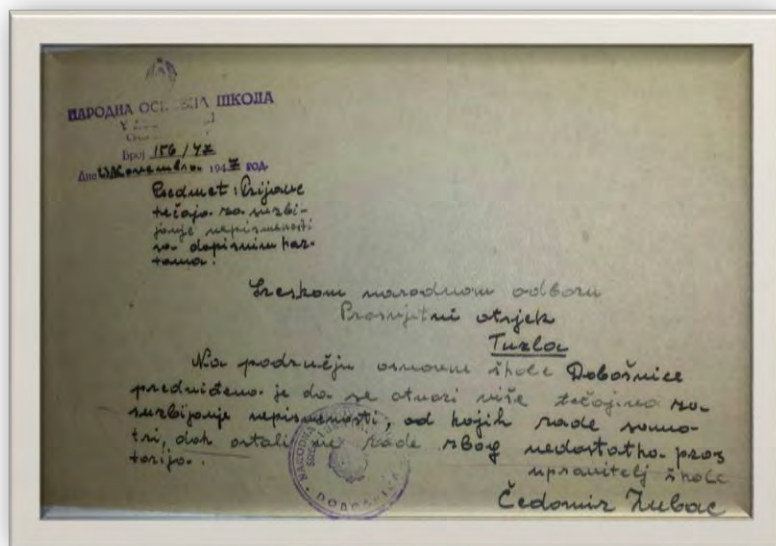 НАРОДНА ОСНОВНА ШКОЛА
У
Број 156/47
Дне novembra 1947 год.
Predmet: Prijave
tečaja za suzbi-
janje nepismenosti
sa dopisnim kar-
tama.
Sreskom narodnom odboru
Prosvjetni otsjek
Tuzla
Na području osnovne škole Dobošnice
predviđeno je da se otvori više tečajeva za
suzbijanje nepismenosti, od kojih rade samo
tri, dok ostali ne rade zbog nedostatka pros
torija.
upravitelj škole
Čedomir Zubac